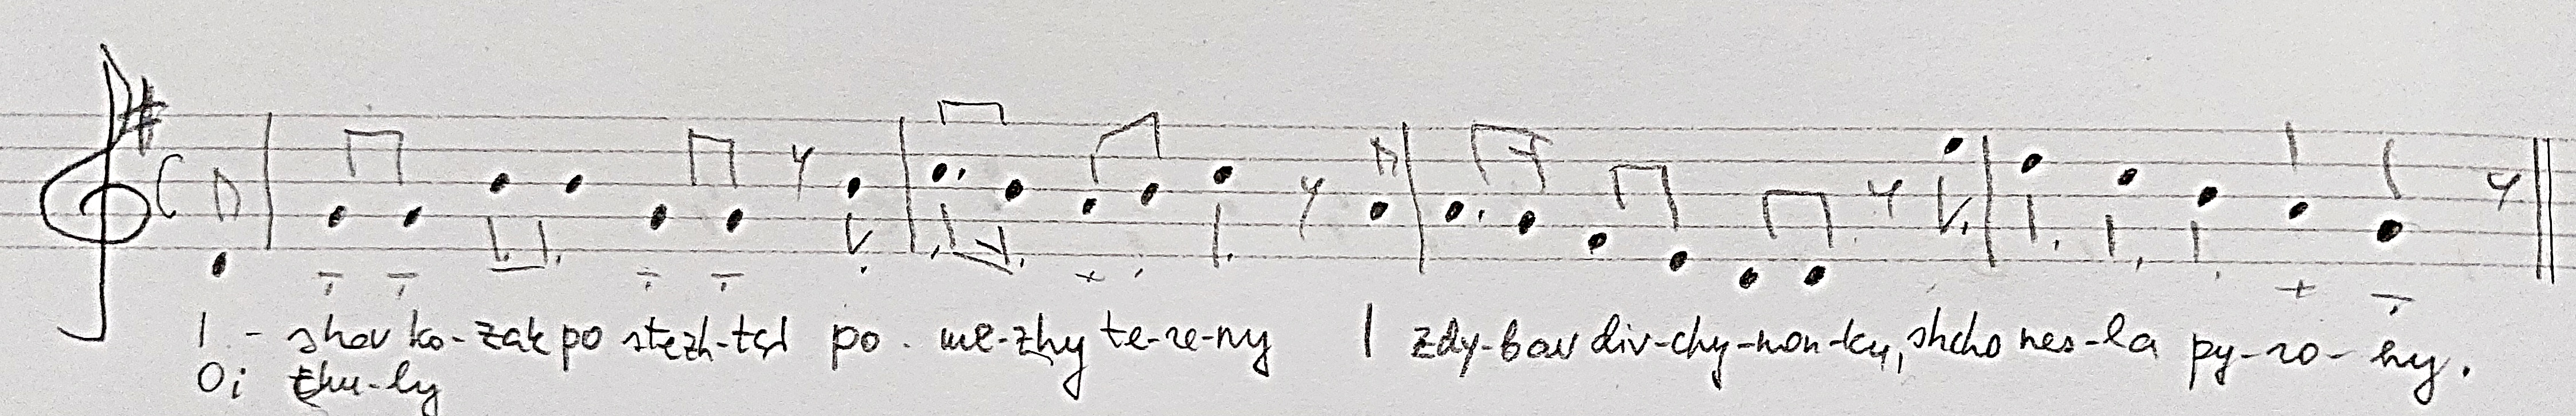 I - shov ko-zak po stezh-tsi po - me-zhy te-re-ny I zdy-bav div-chy-non-ku, shcho nes-la py-ro-hy.
Oi chu-ly